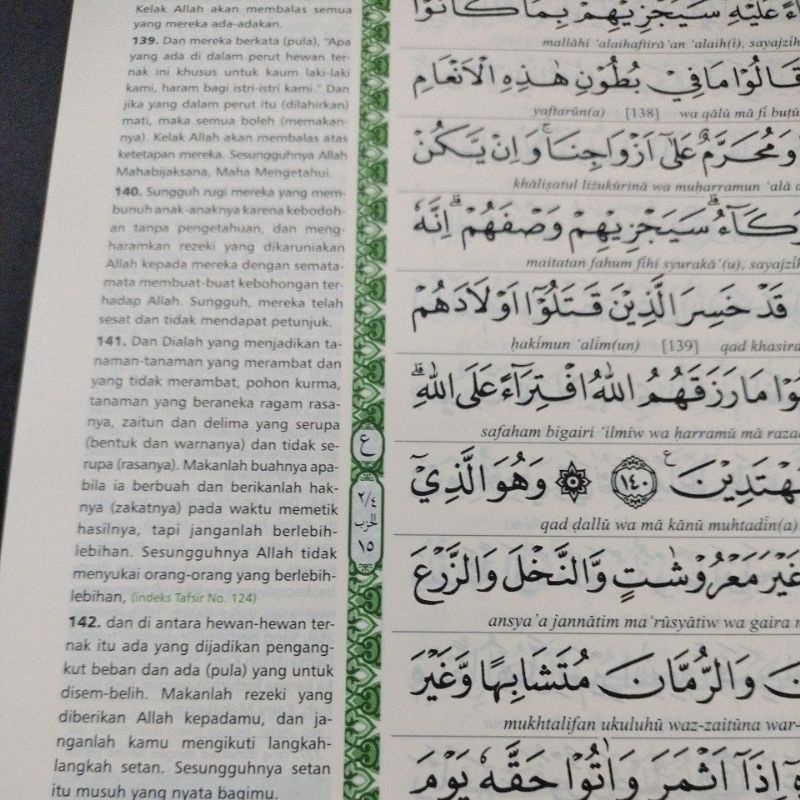 Kelak Allah akan membalas semua
yang mereka ada-adakan.
139. Dan mereka berkata (pula), "Apa
yang ada di dalam perut hewan ter-
nak ini khusus untuk kaum laki-laki
kami, haram bagi istri-istri kami." Dan
jika yang dalam perut itu (dilahirkan)
mati, maka semua boleh (memakan-
nya). Kelak Allah akan membalas atas
ketetapan mereka. Sesungguhnya Allah
Mahabijaksana, Maha Mengetahui.
140. Sungguh rugi mereka yang mem-
bunuh anak-anaknya karena kebodoh-
an tanpa pengetahuan, dan meng-
haramkan rezeki yang dikaruniakan
Allah kepada mereka dengan semata-
mata membuat-buat kebohongan ter-
hadap Allah. Sungguh, mereka telah
sesat dan tidak mendapat petunjuk.
141. Dan Dialah yang menjadikan ta-
naman-tanaman yang merambat dan
yang tidak merambat, pohon kurma,
tanaman yang beraneka ragam rasa-
nya, zaitun dan delima yang serupa
(bentuk dan warnanya) dan tidak se-
rupa (rasanya). Makanlah buahnya apa-
bila ia berbuah dan berikanlah hak-
nya (zakatnya) pada waktu memetik
hasilnya, tapi janganlah berlebih-
lebihan. Sesungguhnya Allah tidak
menyukai orang-orang yang berlebih-
lebihan, (indeks Tafsir No. 124)
142. dan di antara hewan-hewan ter-
nak itu ada yang dijadikan pengang-
kut beban dan ada (pula) yang untuk
disem-belih. Makanlah rezeki yang
diberikan Allah kepadamu, dan ja-
nganlah kamu mengikuti langkah-
langkah setan. Sesungguhnya setan
itu musuh yang nyata bagimu.
ع
٢/٤
الحزب
١٥
عَلَيْهِ سَيَجْزِيْهِمْ بِمَا كَانُوْا
mallāhi 'alaihaftirā'an 'alaih(i), sayajzīh
قَالُوْا مَا فِيْ بُطُوْنِ هٰذِهِ الْاَنْعَامِ
yaftarūn(a) [138] wa qālū mā fī buṭū
وَمُحَرَّمٌ عَلٰٓى اَزْوَاجِنَاۚ وَاِنْ يَّكُنْ
khāliṣatul liżukūrinā wa muḥarramun 'alā
سَيَجْزِيْهِمْ وَصْفَهُمْۗ اِنَّهٗ
maitatan fahum fīhi syurakā'(u), sayajzīh
قَدْ خَسِرَ الَّذِيْنَ قَتَلُوْٓا اَوْلَادَهُمْ
ḥakīmun 'alīm(un) [139] qad khasira
مَا رَزَقَهُمُ اللّٰهُ افْتِرَاۤءً عَلَى اللّٰهِۗ
safaham bigairi 'ilmiw wa ḥarramū mā raza
مُهْتَدِيْنَ ࣖ ١٤٠ ۞ وَهُوَ الَّذِيْٓ
qad ḍallū wa mā kānū muhtadīn(a)
غَيْرَ مَعْرُوْشٰتٍ وَّالنَّخْلَ وَالزَّرْعَ
ansya'a jannātim ma'rūsyātiw wa gaira
وَالرُّمَّانَ مُتَشَابِهًا وَّغَيْرَ
mukhtalifan ukuluhū waz-zaitūna war-
اِذَآ اَثْمَرَ وَاٰتُوْا حَقَّهٗ يَوْمَ